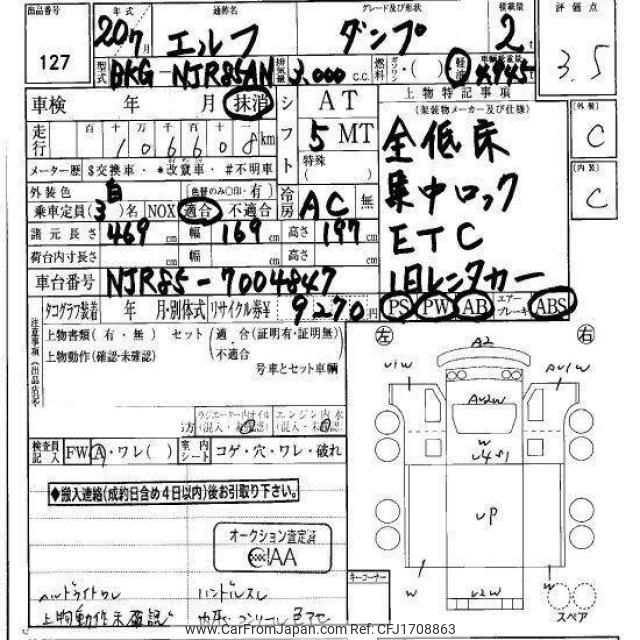 出品番号 年式 通称名 グレード及び形状 積載量 評価点
127 20/7月 エルフ ダンプ 2t 3.5
型式 BKG-NJR85AN 排気量 3,000 c.c. 燃料 ガソリン・( ) 軽油 車輌総重量 4945
車検 年 月 抹消 シフト AT 上物特記事項
(架装物メーカー及び仕様)
走行 百 十 万 千 百 十 一
106608km 5 MT 全低床
メーター歴 $交換車・*改竄車・#不明車 特殊( ) 集中ロック
外装色 白 (色替のみ○印・有) 冷房 AC 無
乗車定員(3)名 NOX 適合 不適合 ETC
諸元長さ 469cm 幅 169cm 高さ 197cm
荷台内寸長さ cm 幅 cm 高さ cm
車台番号 NJR85-7004847 旧レンタカー
タコグラフ装着 年 月・別体式 リサイクル券¥ 9270円 PS PW AB エアーブレーキ ABS
外装 C
内装 C
注意事項(出品店記入)
上物書類(有・無) セット(適合(証明有・証明無)・不適合
上物動作(確認・未確認) 号車とセット車輌
ラジエーター内オイル(混入・未確認) エンジン内水(混入・未確認)
検査員記入 FW A・ワレ( ) 室内シート コゲ・穴・ワレ・破れ
◆搬入連絡(成約日含め4日以内)後お引取り下さい。
オークション査定済
AA
ハンドルスレ
上物動作未確認
キーコーナー
左 右
A2
U1W AU1W
AU2W
W
U4S1
UP
W W
U2W
スペア
www.CarFromJapan.com Ref:CFJ1708863